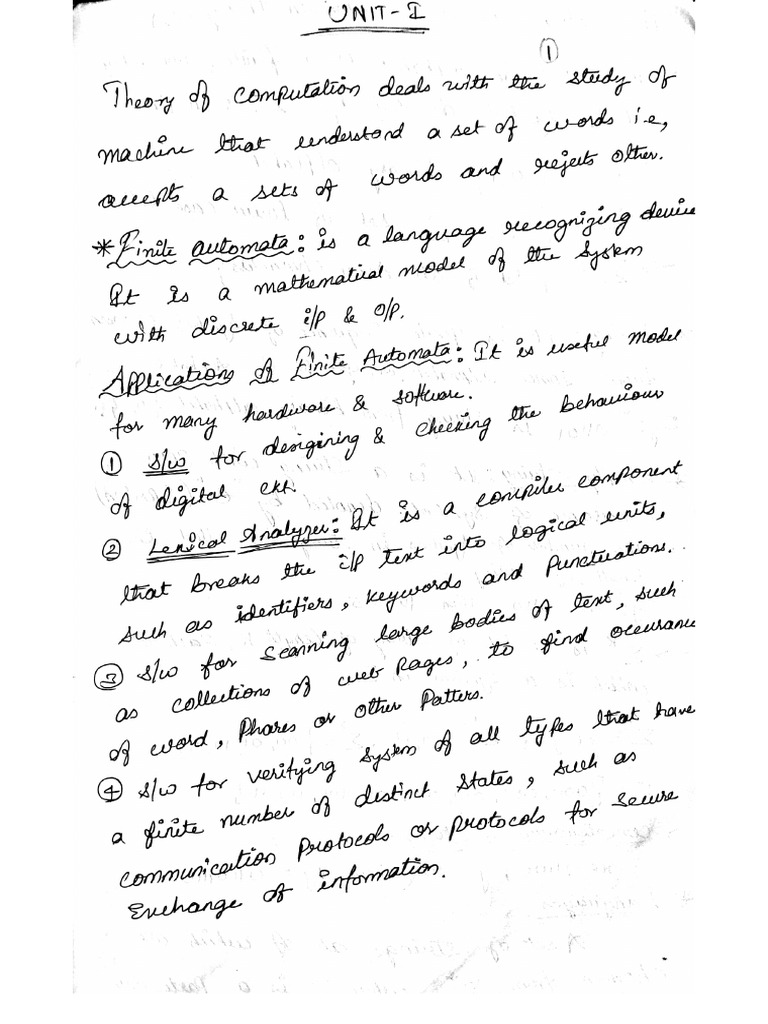 UNIT-I
1
Theory of computation deals with the study of
machine that understand a set of words i.e,
accepts a sets of words and rejects other.
*Finite automata: is a language recognizing device
It is a mathematical model of the system
with discrete i/p & o/p.
Applications of Finite Automata: It is useful model
for many hardware & software.
1 s/w for desigining & checking the behaviour
of digital ckt.
2 Lexical Analyzer: It is a compiler component
that breaks the i/p text into logical units,
such as identifiers, keywords and punctuations.
3 s/w for scanning large bodies of text, such
as collections of web pages, to find occurance
of word, Phares or other Patters.
4 s/w for verifying system of all types that have
a finite number of distinct states, such as
communication Protocols or protocols for secure
Exchange of information.